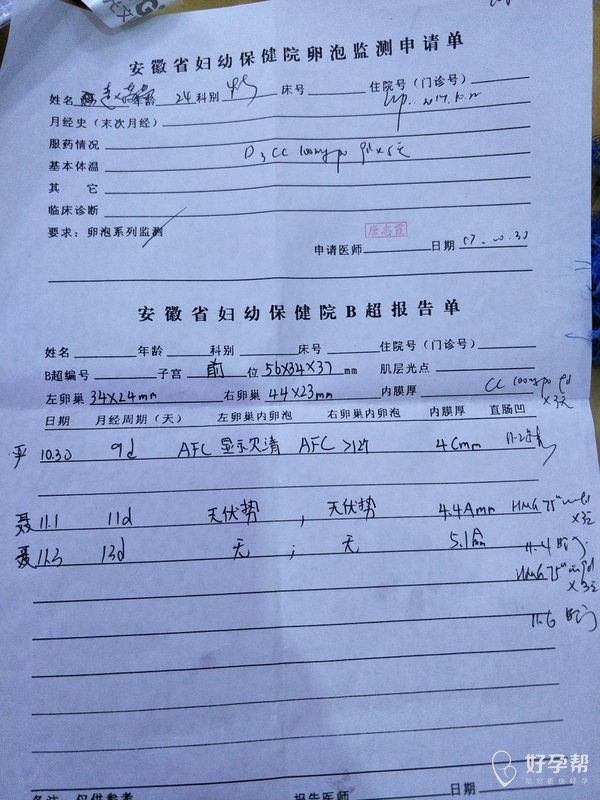 安徽省妇幼保健院卵泡监测申请单
姓名 24 科别 床号 住院号（门诊号）
月经史（末次月经） Lmp. 2017.10.22
服药情况
基本体温 D3 CC 100mg po qd×5天
其 它
临床诊断
要求：卵泡系列监测
申请医师 唐志霞 日期 17.10.30
安徽省妇幼保健院B超报告单
姓名 年龄 科别 床号 住院号（门诊号）
B超编号 子宫 前 位 56×34×37 mm 肌层光点
左卵巢 34×24mm 右卵巢 44×23mm 内膜厚 CC 100mg po qd ×3天
日期 月经周期（天） 左卵巢内卵泡 右卵巢内卵泡 内膜厚 直肠凹
10.30 9d AFC 显示欠清 AFC >12个 4Cmm
聂 11.1 11d 无优势 ， 无优势 4.4Amm HMG 75u qd ×3天
聂 11.3 13d 无 ； 无 5.1Amm 11.4
HMG 75u qd ×3天
11.6
备注：仅供参考 报告医师 日期
好孕帮